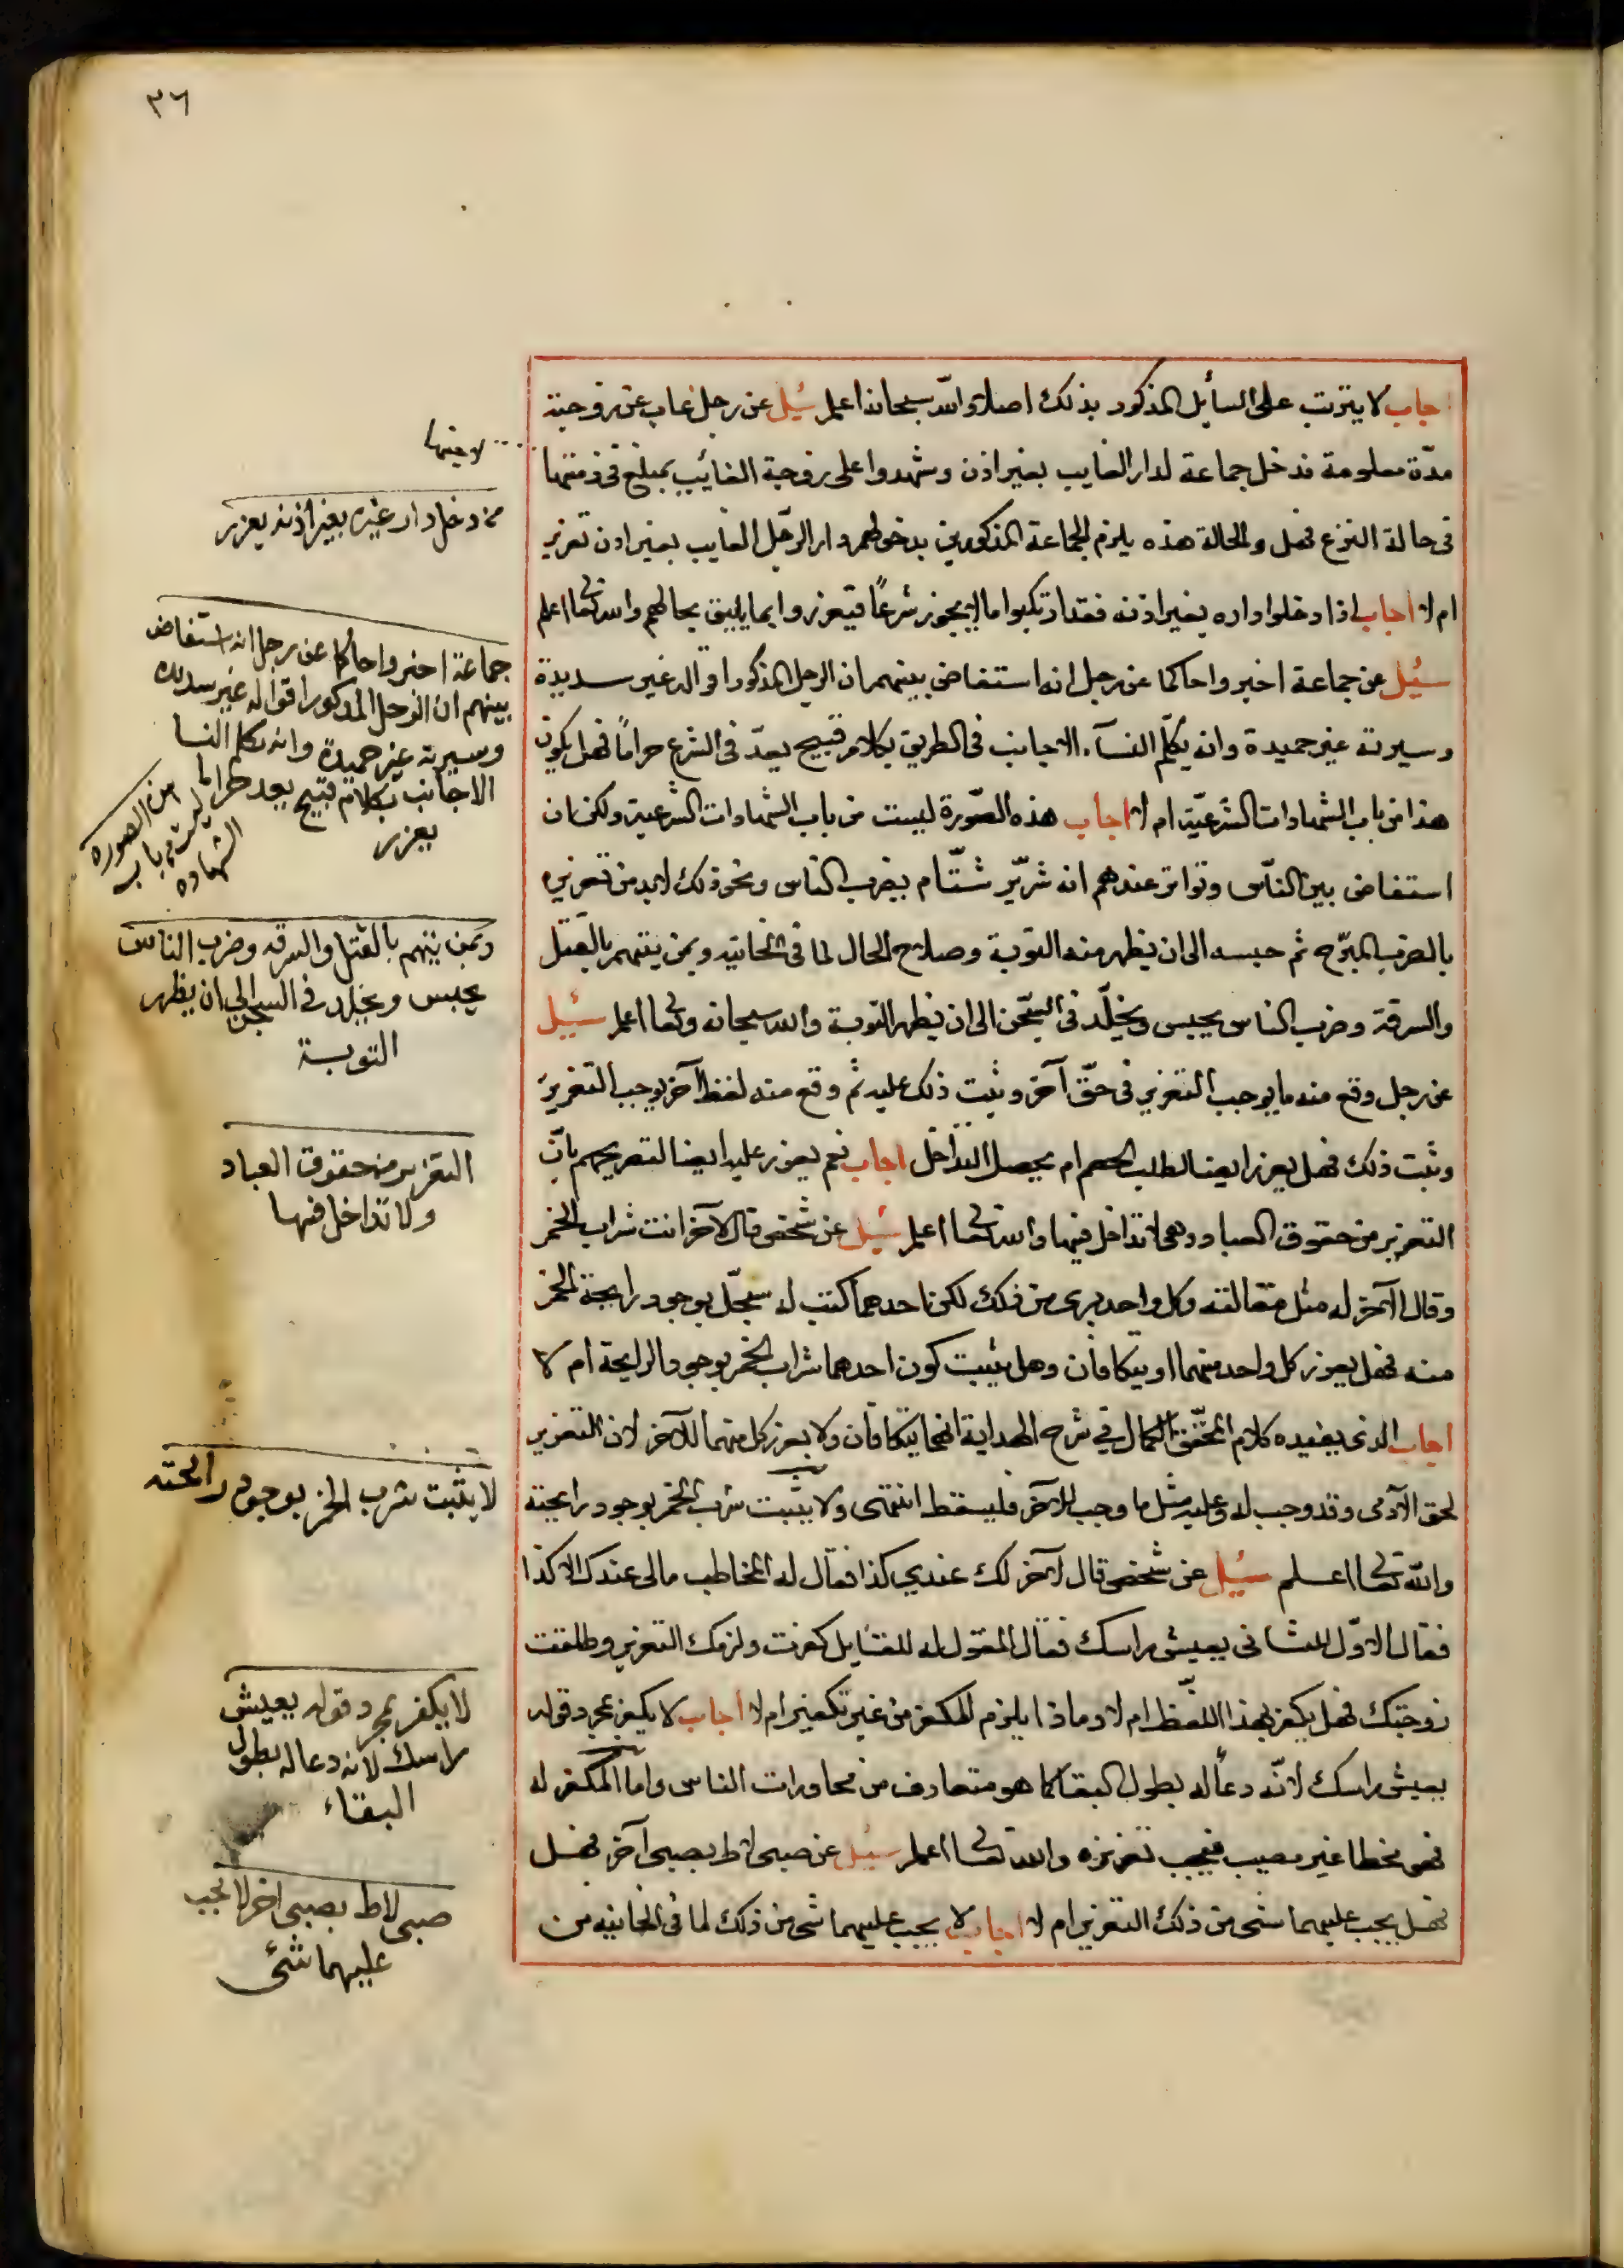 ٣٦
اجاب لا يترتب على السأيل المذكور بذلك اصلا والله سبحانه اعلم سئيل عن رجل غاب عن زوجته
مدّة معلومة فدخل جماعة لدار الغايب بغير اذن وشهدوا على زوجة الغائيب بمبلغ في ذمتها
في حالة النزع فهل والحالة هذه يلزم الجماعة المذكورين بدخولهم دار الرجل الغايب بغير اذن تعزير
ام لا اجاب اذا دخلوا داره بغير اذنه فقد ارتكبوا ما لا يجوز شرعاً فيعزروا بما يليق بحالهم والله تعالى اعلم
سئيل عن جماعة اخبروا حاكما عن رجل انه استفاض بينهم ان الرجل المذكور اقواله غير سديدة
وسيرته غير حميدة وانه يكلّم النسآء الاجانب في الطريق بكلام قبيح يعدّ في الشرع حراماً فهل يكون
هذا من باب الشهادات الشرعيّة ام لا اجاب هذه الصّورة ليست من باب الشهادات الشرعية ولكن ان
استفاض بين النّاس وتواتر عندهم انه شرّير شتّام يضرب الناس ونحو ذلك لابد من تعزيره
بالضرب المبرّح ثم حبسه الى ان يظهر منه التوبة وصلاح الحال لما في الخانيه ومن يتهم بالقتل
والسرقة وضرب الناس يحبس ويخلّد في السّجن الى ان يظهر التوبة والله سبحانه وتعالى اعلم سئيل
عن رجل وقع منه ما يوجب التعزير في حقّ آخر وثبت ذلك عليه ثم وقع منه لفظ آخر يوجب التعزير
وثبت ذلك فهل يعزر ايضا لطلب الخصم ام يحصل التداخل اجاب نعم يعزر عليه ايضا لتصريحهم بانّ
التعزير من حقوق العباد وهى لا تداخل فيها والله تعالى اعلم سئيل عن شخص قال لآخر انت شراب الخمر
وقال الآخر له مثل مقالته وكل واحد برى من ذلك لكن احدهما كتب له سجلّ بوجود رايحة الخمر
منه فهل يعزر كل واحد منهما او يتكافأن وهل يثبت كون احدهما شراب الخمر بوجود الرايحة ام لا
اجاب الذى يفيده كلام المحقّق الكمال في شرح الهداية انهما يتكافأن ولا يعزر كل منهما للآخر لان التعزير
لحق الآدمى وقد وجب له وعليه مثل ما وجب للآخر فليسقط انتهى ولا يثبت شرب الخمر بوجود رايحته
والله تعالى اعلم سئيل عن شخص قال لآخر لك عندي كذا فقال له المخاطب مالى عندك الا كذا
فقال الاوّل للثانى يعيش راسك فقال المقول له للقايل كفرت ولزمك التعزير وطلقت
زوجتك فهل يكفر بهذا اللّفظ ام لا وماذا يلزم المكفر من غير تكفير ام لا اجاب لا يكفر بمجرد قوله
يعيش راسك لانّه دعأ له بطول البقا كما هو متعارف من محاورات الناس واما المكفر له
فهو مخطا غير مصيب فيجب تعزيره والله تعالى اعلم سئيل عن صبى لاط بصبى آخر فهل
فهل يجب عليهما شى من ذلك التعزير ام لا اجاب لا يجب عليهما شى من ذلك لما في الخانيه من
من دخل دار غيره بغير اذنه يعزر
جماعة اخبروا حاكما عن رجل انه استفاض
بينهم ان الرجل المذكور اقواله غير سديده
وسيرته غير حميدة وانه يكلم النسا
الاجانب بكلام قبيح يعد حراما
يعزر
الصوره
ليست من باب
الشهاده
ومن يتهم بالقتل والسرقه وضرب الناس
يحبس ويخلد في السجن الى ان يظهر
التوبة
التعزير من حقوق العباد
ولا تداخل فيها
لا يثبت شرب الخمر بوجود رائحته
لا يكفر بمجرد قوله يعيش
راسك لانه دعا له بطول
البقاء
صبى لاط بصبى اخر لا يجب
عليهما شئ